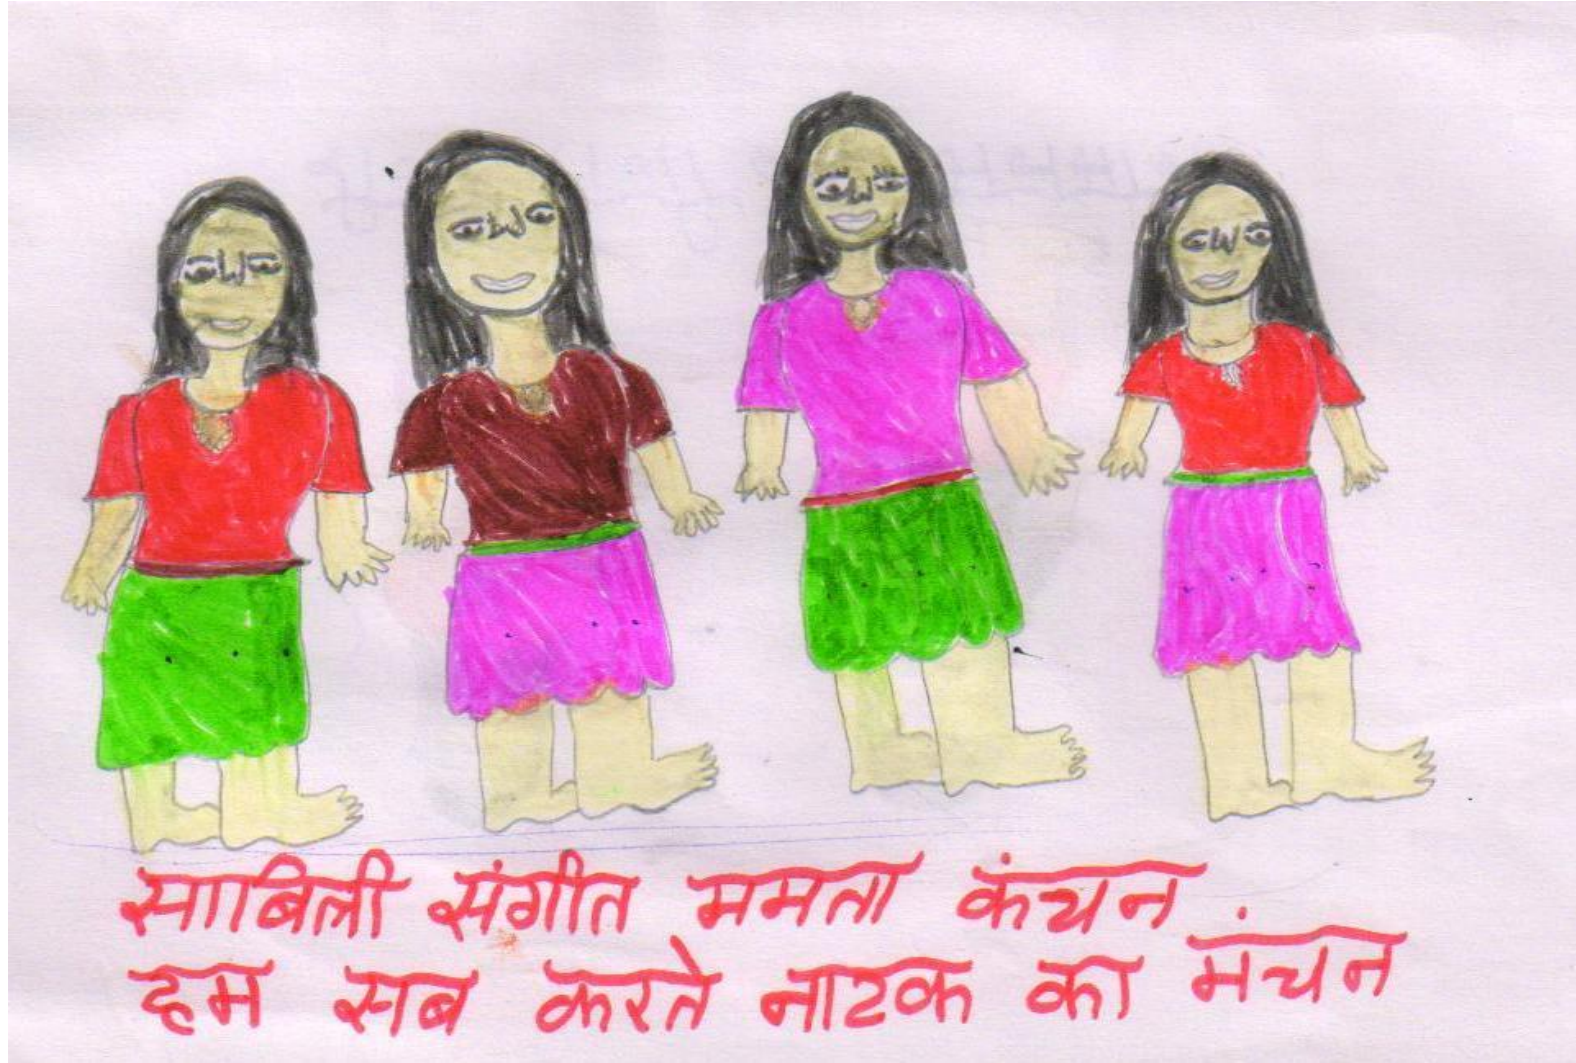 साबिली संगीत ममता कंचन
हम सब करते नाटक का मंचन